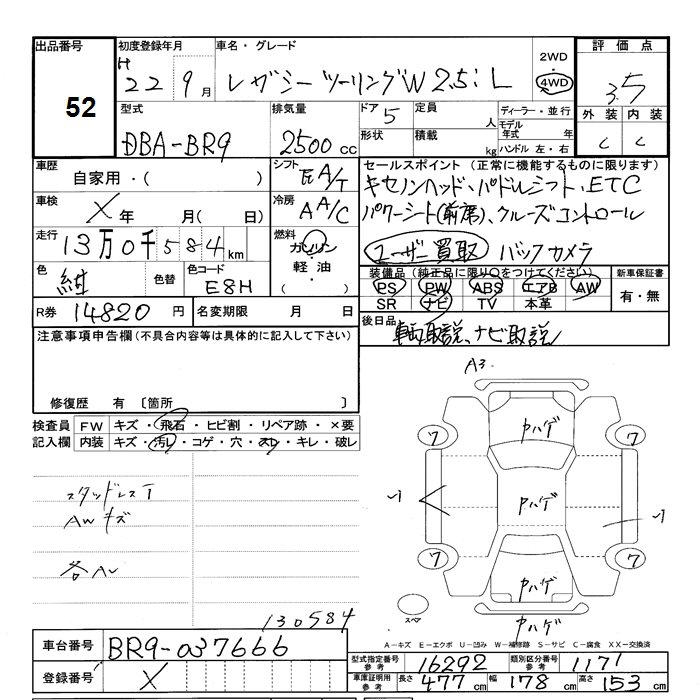 出品番号 初度登録年月 車名・グレード 2WD・4WD 評価点
52 H 22 9月 レガシーツーリングW 2.5i L 3.5
外装 内装
C C
型式 排気量 ドア 定員 ディーラー・並行
DBA-BR9 2500cc 5 人 モデル年式 年式
形状 積載 kg ハンドル 左・右
車歴 自家用・( ) シフト 瓦A/T セールスポイント (正常に機能するものに限ります)
キセノンヘッド、パドルシフト、ETC
車検 X年 月(日) 冷房 AA/C パワーシート(前席)、クルーズコントロール
走行 13万0千584km 燃料 ガソリン ユーザー買取 バックカメラ
軽油・
色 紺 色替 色コード E8H 装備品 (純正品に限り○をつけてください) 新車保証書
PS PW ABS エアB AW 有・無
SR ナビ TV 本革
R券 14820円 名変期限 月 日 後日品
車両取説、ナビ取説
注意事項申告欄(不具合内容等は具体的に記入して下さい)
修復歴 有 〔箇所 〕
検査員 FW キズ・飛石・ヒビ割・リペア跡・×要
記入欄 内装 キズ・汚レ・コゲ・穴・スレ・キレ・破レ
スタッドレスT
AWキズ
各A
A3
ヤハゲ
7 7
ヤハゲ
7 7
ヤハゲ
スペア ヤハゲ
130584
A-キズ E-エクボ U-凹み W-補修跡 S-サビ C-腐食 XX-交換済
車台番号 BR9-037666
型式指定番号 参考 16292 類別区分番号 参考 1171
登録番号 X
車庫証明用 参考 長さ 477cm 幅 178cm 高さ 153cm